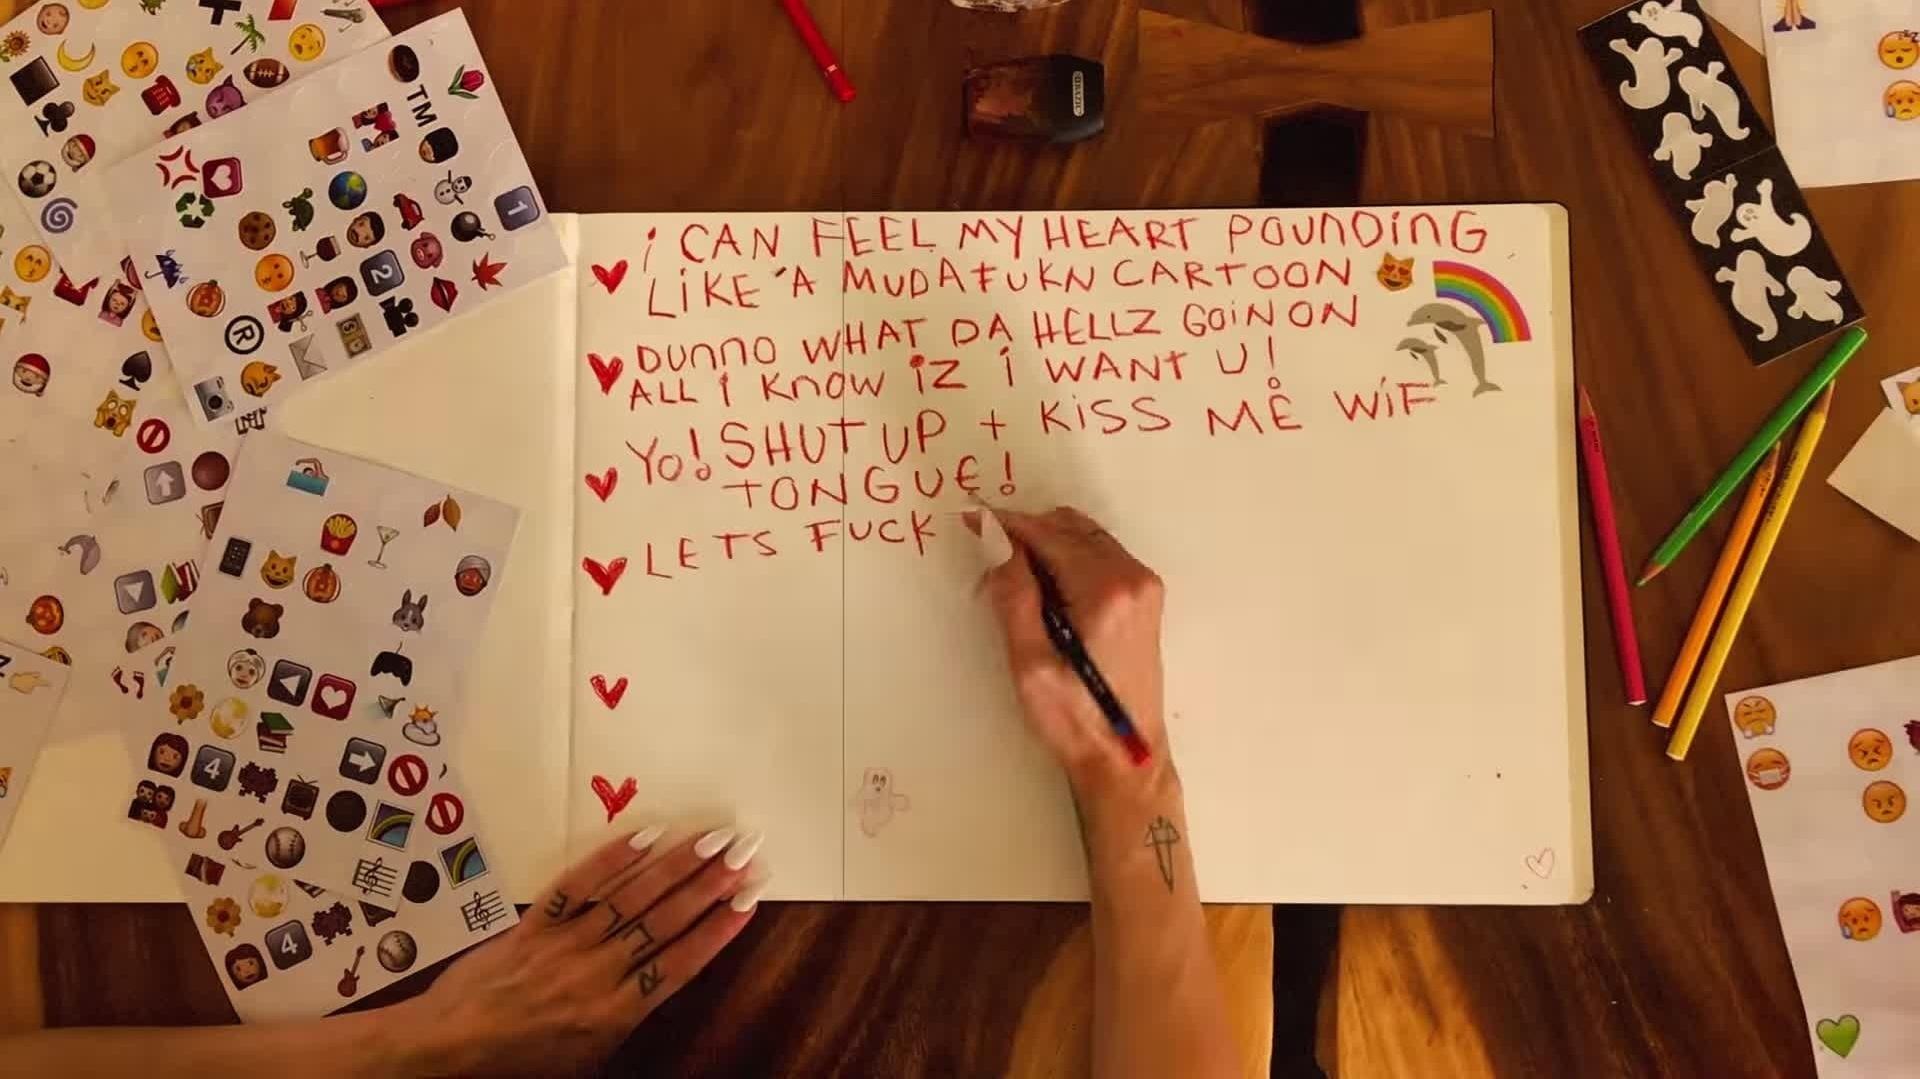 TM
1
2
R
4
4
DERAZIL
i CAN FEEL MY HEART POUNDING
LIKE A MUDAFUKN CARTOON
DUNNO WHAT DA HELLZ GOiN ON
ALL i KNOW iZ i WANT U!
YO! SHUT UP + KiSS ME WiF
TONGUE!
LETS FUCK